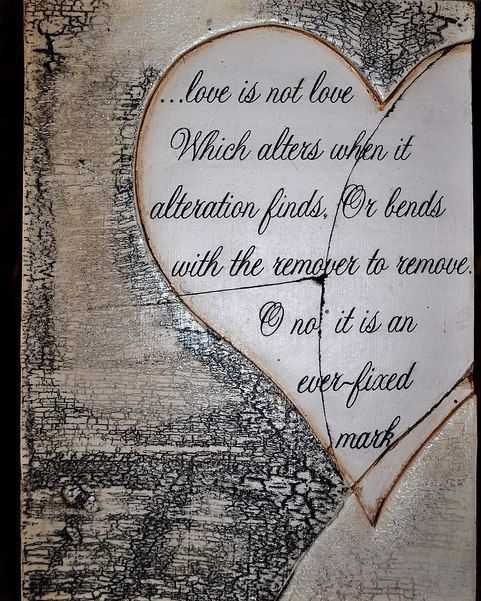 ...love is not love
Which alters when it
alteration finds, Or bends
with the remover to remove.
O no, it is an
ever-fixed
mark